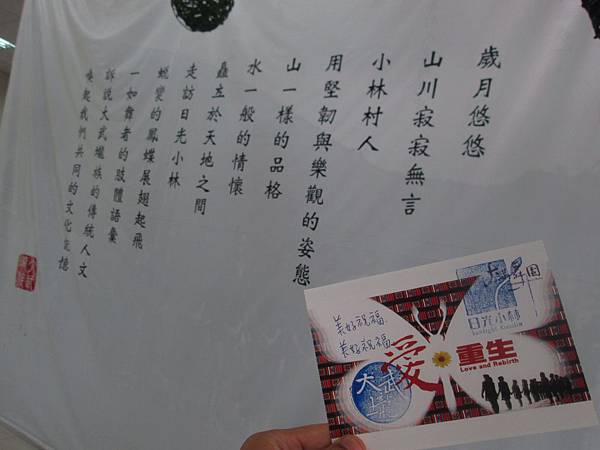 歲月悠悠
山川寂寂無言
小林村人
用堅韌與樂觀的姿態
山一樣的品格
水一般的情懷
矗立於天地之間
走訪日光小林
蛻變的鳳蝶展翅起飛
一如舞者的肢體語彙
訴說大武壠族的傳統人文
喚起我們共同的文化記憶
日光小林
Sunlight Xiaolin
美好祝福
美好祝福
愛
重生
Love and Rebirth
大武